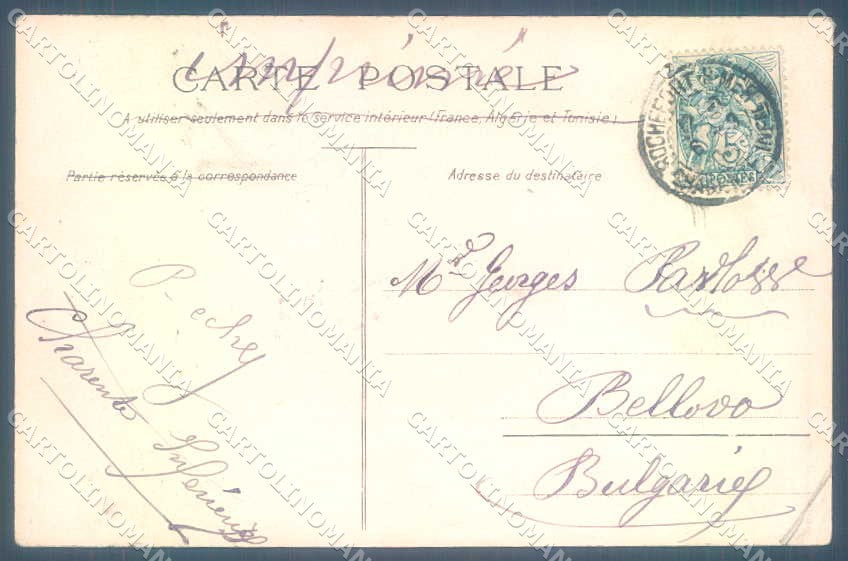 imprimé
CARTE POSTALE
A utiliser seulement dans le service intérieur (France, Algérie et Tunisie)
Partie réservée à la correspondance
Adresse du destinataire
ROCHEFORT
5
POSTES
Mr Georges
Bellovo
Bulgarie
Charente
Inférieure
CARTOLINOMANIA